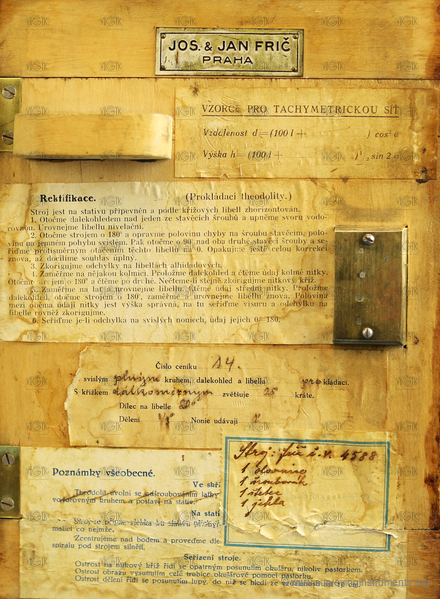 JOS. & JAN FRIČ
PRAHA
VZORCE PRO TACHYMETRICKOU SÍŤ
Vzdálenost d = (100 l + ) cos² α
Výška h (100 l + ) ½ sin 2 α
Rektifikace. (Prokládací theodolity.)
Stroj jest na stativu připevněn a podle křížových libell zhorizontován.
1. Otočme dalekohledem nad jeden ze stavěcích šroubů a upněme svoru vodo-
rovnou. Urovnejme libellu nivelační.
2. Otočme strojem o 180° a opravme polovinu chyby na šroubu stavěcím, polo-
vinu na jemném pohybu svislém. Pak otočme o 90° nad oba druhé stavěcí šrouby a se-
řiďme prohlášeným otáčením též libellu na 0. Opakujme ještě celou korrekci
znova, až docílíme souhlas úplný.
3. Zkorigujme odchylky na libellách alhidádových.
4. Zaměřme na nějakou kolmici. Proložme dalekohled a čtěme údaj kolmé nitky.
Otočme strojem o 180° a čtěme po druhé. Nečteme-li stejně zkorigujme nitkový kříž.
5. Zaměřme na lať a urovnejme libellu. Čtěme údaj střední nitky. Proložme
dalekohled, otočme strojem o 180°, zaměřme a urovnejme libellu znova. Polovina
mezi oběma údaji nitky jest výška správná, na tu seřiďme visuru a odchylku na
libelle rovněž zkorigujme.
6. Seřiďme je-li odchylka na svislých noniech, údaj jejich 0°, 180°.
Číslo ceníku 14.
svislým plným kruhem, dalekohled a libella prokládací.
S křížem dálkoměrným zvětšuje 25 kráte.
Dílec na libelle 20"
Dělení Nonie udávají
Poznámky všeobecné.
Ve skří
Theodolit zvolni se odšroubováním laťky
vodorovným kruhem a postaví na stativ.
Na stati
Stroj se připne zlehka ku stativu
malíčko nejméně.
Zcentrujme nad bodem a proveďme
spirálu pod strojem silněji.
Seřízení stroje.
Ostrost na nitkový kříž řídí se opatrným posunutím okuláru, nikoliv pastorkem.
Ostrost obrazu vysunutím celé trubice okulárové pomocí pastorku.
Ostrost dělení řídí se posunutím lupy, do níž se hledí
Stroj: Frič i. č. 4588
1 olovnice
1 šroubovák
1 štětec
1 jehla